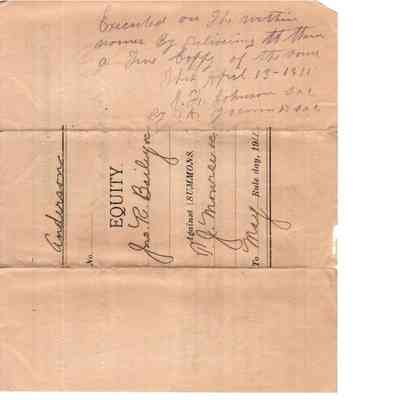 Executed on The within
names By Delivering to them
a True Coppy of the same
This April 13-1911
Johnson
By
Anderson
No.
EQUITY.
Jno. R. Bailey
Against } SUMMONS.
Monroe
To May Rule day, 191